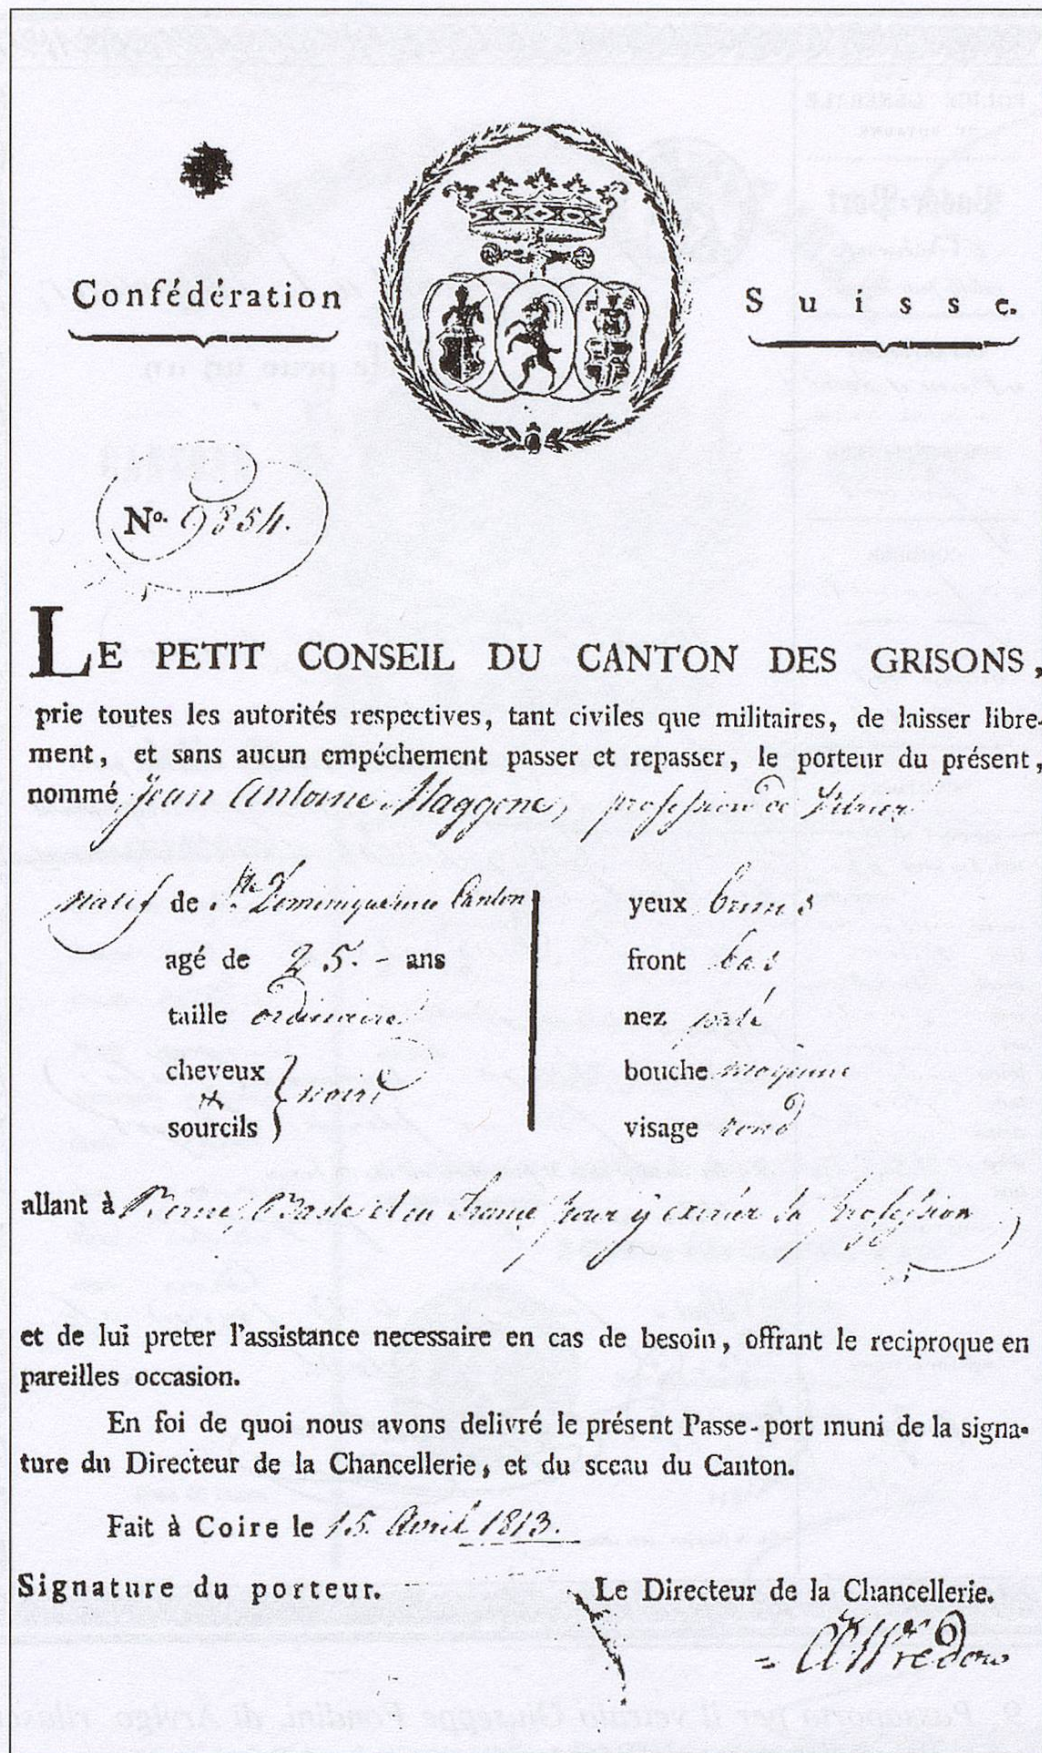 Confédération Suisse.
No. 9854.
LE PETIT CONSEIL DU CANTON DES GRISONS,
prie toutes les autorités respectives, tant civiles que militaires, de laisser libre-
ment, et sans aucun empéchement passer et repasser, le porteur du présent,
nommé Jean Antoine Maggene, profession de Vitrier
natif de Ste. Dominique mon Canton
agé de 25. - ans
taille ordinaire
cheveux
et noirs
sourcils
yeux bruns
front bas
nez
bouche moyenne
visage rond
allant à Berne, Basle et en France pour y exercer sa profession
et de lui preter l'assistance necessaire en cas de besoin, offrant le reciproque en
pareilles occasion.
En foi de quoi nous avons delivré le présent Passe-port muni de la signa-
ture du Directeur de la Chancellerie, et du sceau du Canton.
Fait à Coire le 15. Avril 1813.
Signature du porteur. Le Directeur de la Chancellerie.